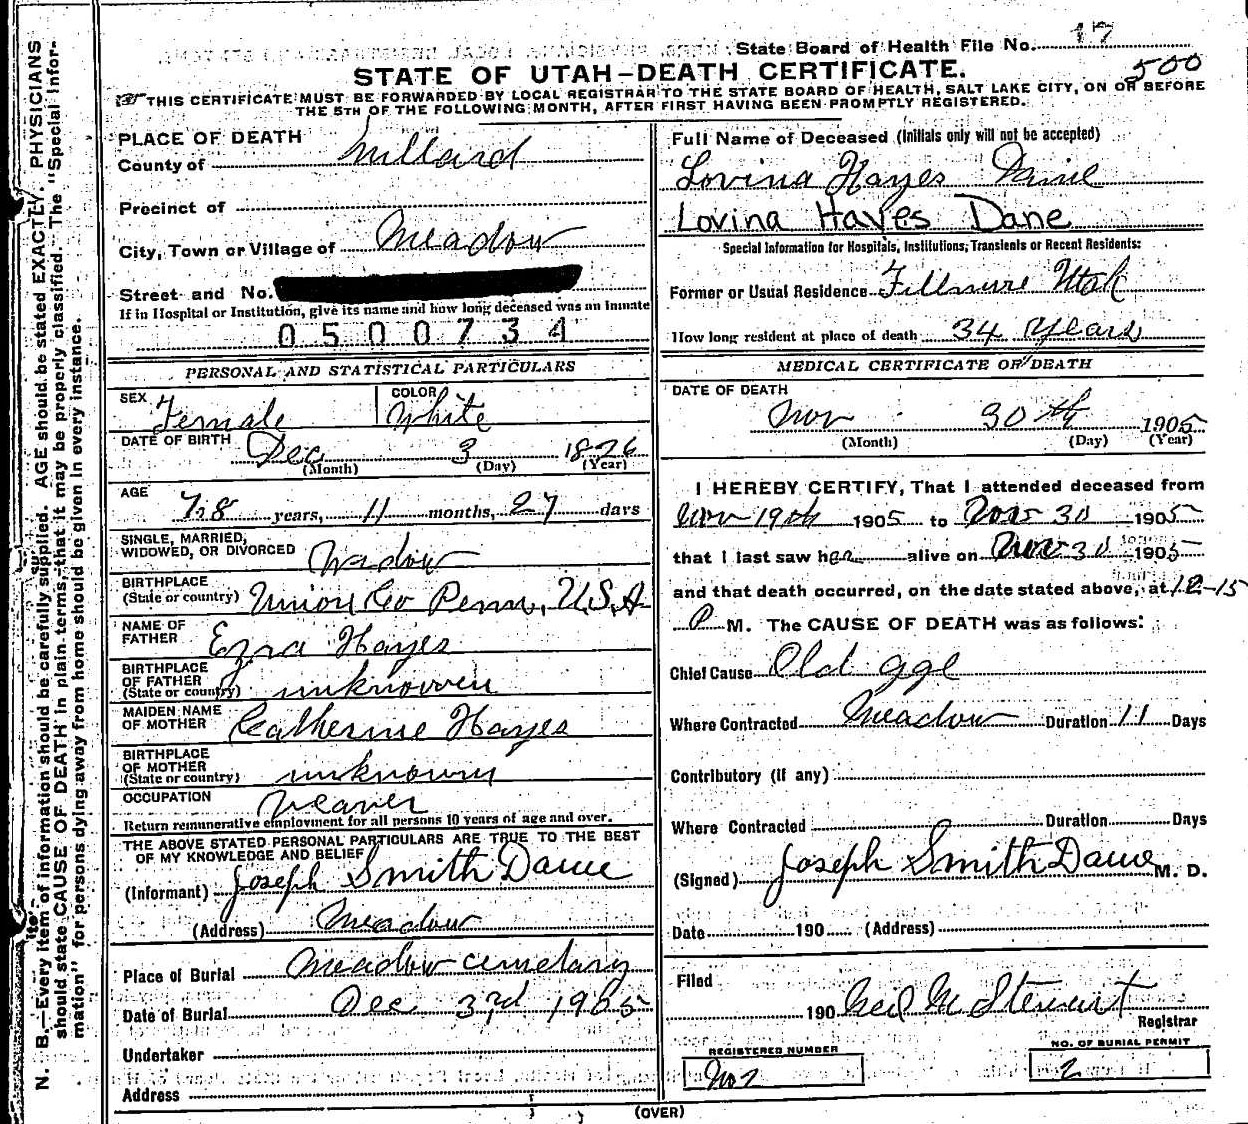 State Board of Health File No. 17
STATE OF UTAH—DEATH CERTIFICATE.
500
THIS CERTIFICATE MUST BE FORWARDED BY LOCAL REGISTRAR TO THE STATE BOARD OF HEALTH, SALT LAKE CITY, ON OR BEFORE
THE 5TH OF THE FOLLOWING MONTH, AFTER FIRST HAVING BEEN PROMPTLY REGISTERED.
N. B.—Every item of information should be carefully supplied. AGE should be stated EXACTLY. PHYSICIANS
should state CAUSE OF DEATH in plain terms, that it may be properly classified. The "Special Infor-
mation" for persons dying away from home should be given in every instance.
PLACE OF DEATH
County of Millard
Precinct of
City, Town or Village of Meadow
Street and No.
If in Hospital or Institution, give its name and how long deceased was an inmate
0500734
PERSONAL AND STATISTICAL PARTICULARS
SEX Female COLOR White
DATE OF BIRTH Dec 3 1826
(Month) (Day) (Year)
AGE 78 years, 11 months, 27 days
SINGLE, MARRIED,
WIDOWED, OR DIVORCED Widow
BIRTHPLACE
(State or country) Union Co Penn, U.S.A
NAME OF
FATHER Ezra Hayes
BIRTHPLACE
OF FATHER
(State or country) unknowen
MAIDEN NAME
OF MOTHER Catherine Hayes
BIRTHPLACE
OF MOTHER
(State or country) unknown
OCCUPATION Weaver
Return remunerative employment for all persons 10 years of age and over.
THE ABOVE STATED PERSONAL PARTICULARS ARE TRUE TO THE BEST
OF MY KNOWLEDGE AND BELIEF
(Informant) Joseph Smith Dame
(Address) Meadow
Place of Burial Meadow cemetary
Date of Burial Dec 3rd 1905
Undertaker
Address
Full Name of Deceased (Initials only will not be accepted)
Lovina Hayes Dame
Lovina Hayes Dane
Special Information for Hospitals, Institutions, Transients or Recent Residents:
Former or Usual Residence Fillmore Utah
How long resident at place of death 34 Years
MEDICAL CERTIFICATE OF DEATH
DATE OF DEATH
Nov 30th 1905
(Month) (Day) (Year)
I HEREBY CERTIFY, That I attended deceased from
Nov 19th 1905 to Nov 30 1905
that I last saw her alive on Nov 30 1905
and that death occurred, on the date stated above, at 12-15
P M. The CAUSE OF DEATH was as follows:
Chief Cause Old age
Where Contracted Meadow Duration 11 Days
Contributory (if any)
Where Contracted Duration Days
(Signed) Joseph Smith Dame M. D.
Date 190 (Address)
Filed
190 Neil M Stewart
Registrar
REGISTERED NUMBER
NO. OF BURIAL PERMIT
2
(OVER)